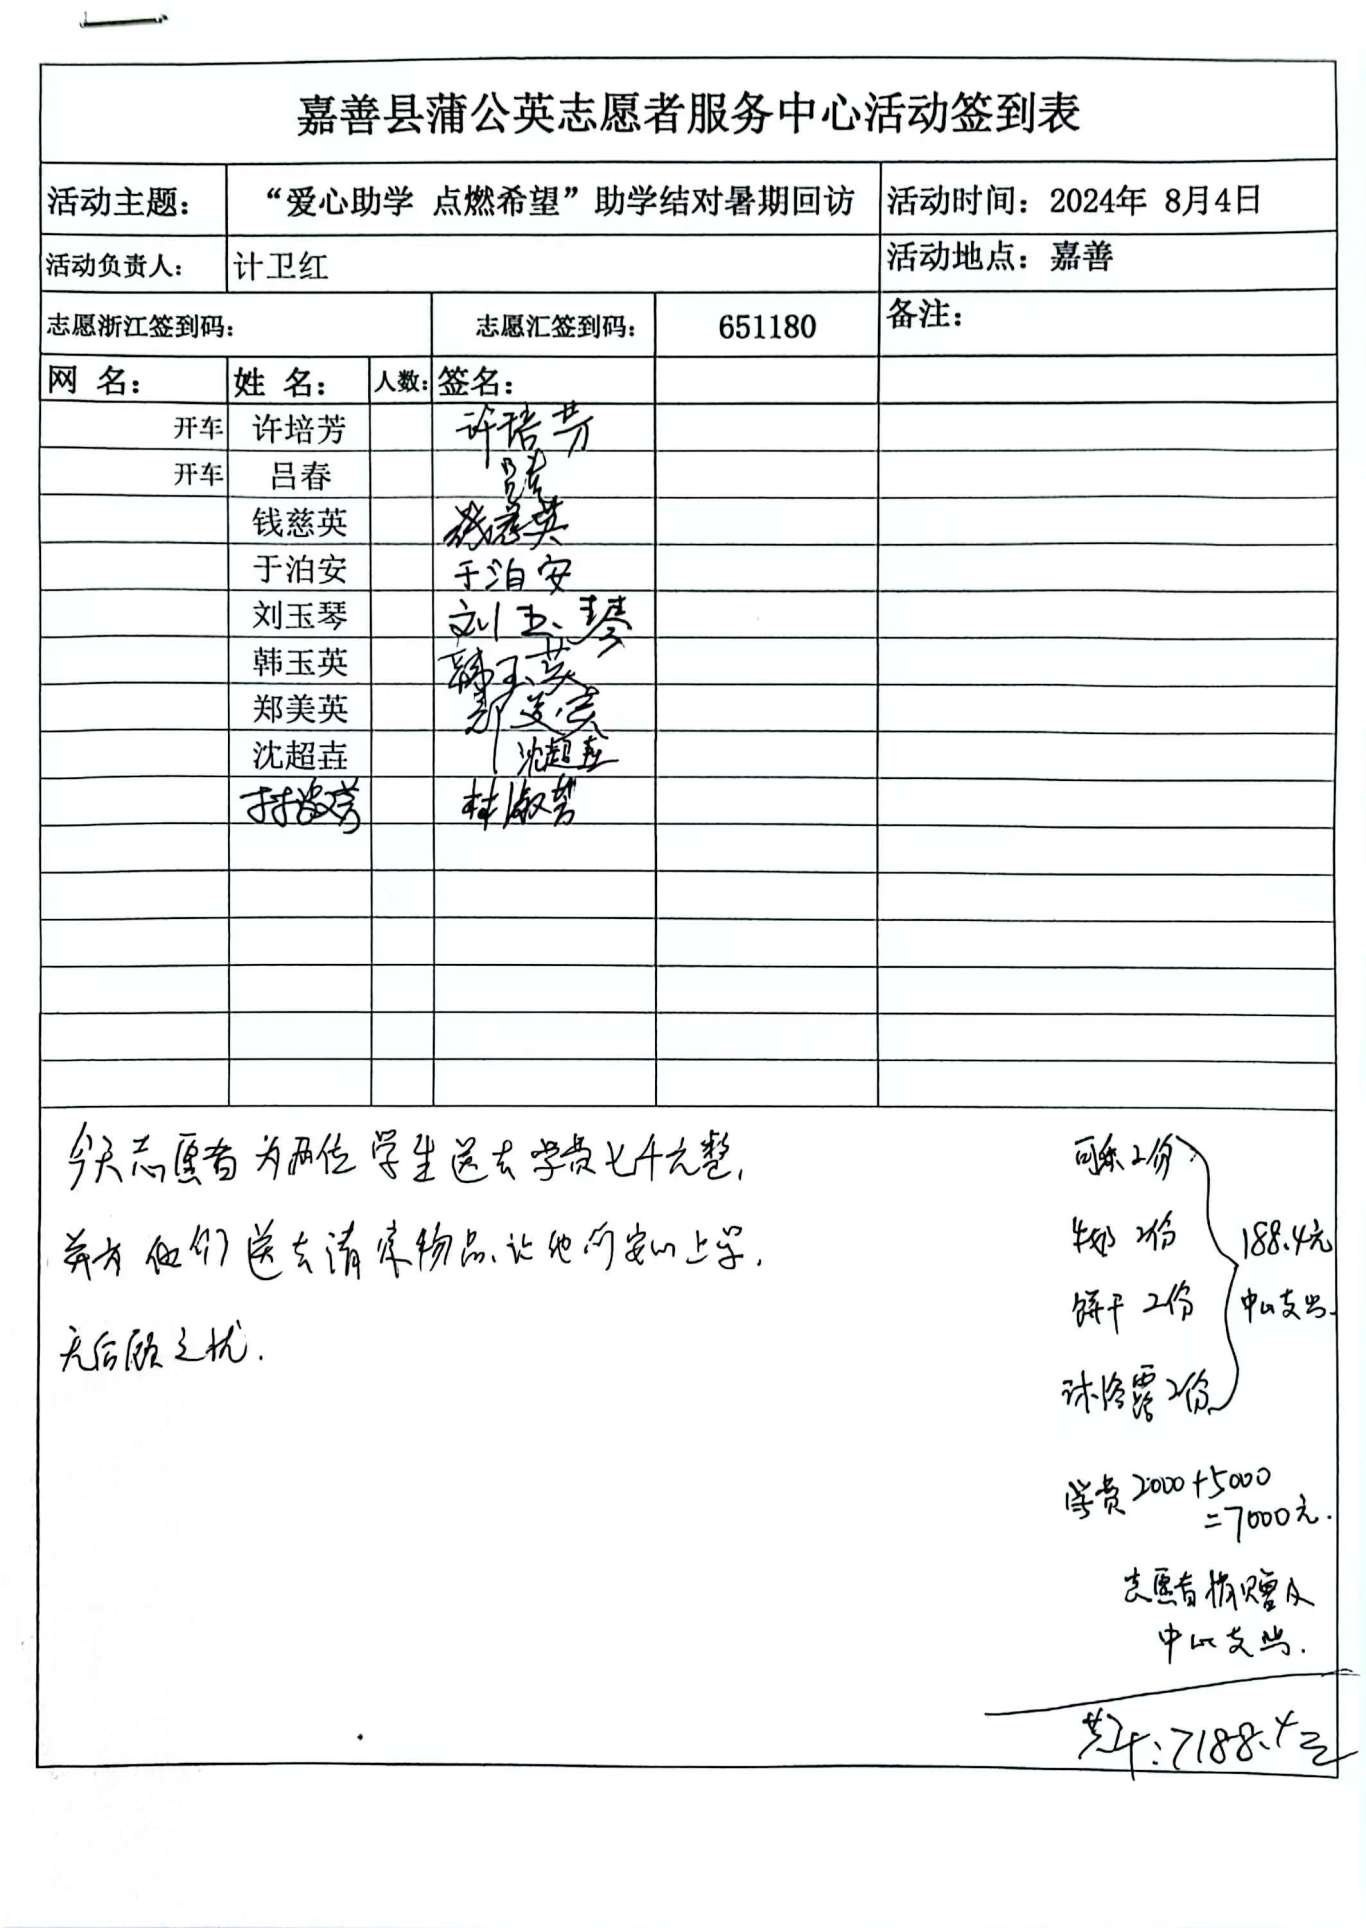 嘉善县蒲公英志愿者服务中心活动签到表
活动主题： “爱心助学 点燃希望”助学结对暑期回访 活动时间：2024年 8月4日
活动负责人： 计卫红 活动地点：嘉善
志愿浙江签到码： 志愿汇签到码： 651180 备注：
网 名： 姓 名： 人数： 签名：
开车 许培芳 许培芳
开车 吕春 吕春
钱慈英 钱慈英
于泊安 于泊安
刘玉琴 刘玉琴
韩玉英 韩玉英
郑美英 郑美英
沈超垚 沈超垚
林淑芳 林淑芳
今天志愿者为两位学生送去学费七千元整，
并为他们送去清凉物品，让他们安心上学，
无后顾之忧.
可乐2份
牛奶 2份
饼干 2份
2份
188.4元
中心支出.
学费2000+5000
=7000元.
志愿者捐赠及
中心支出.
共计:7188.4元